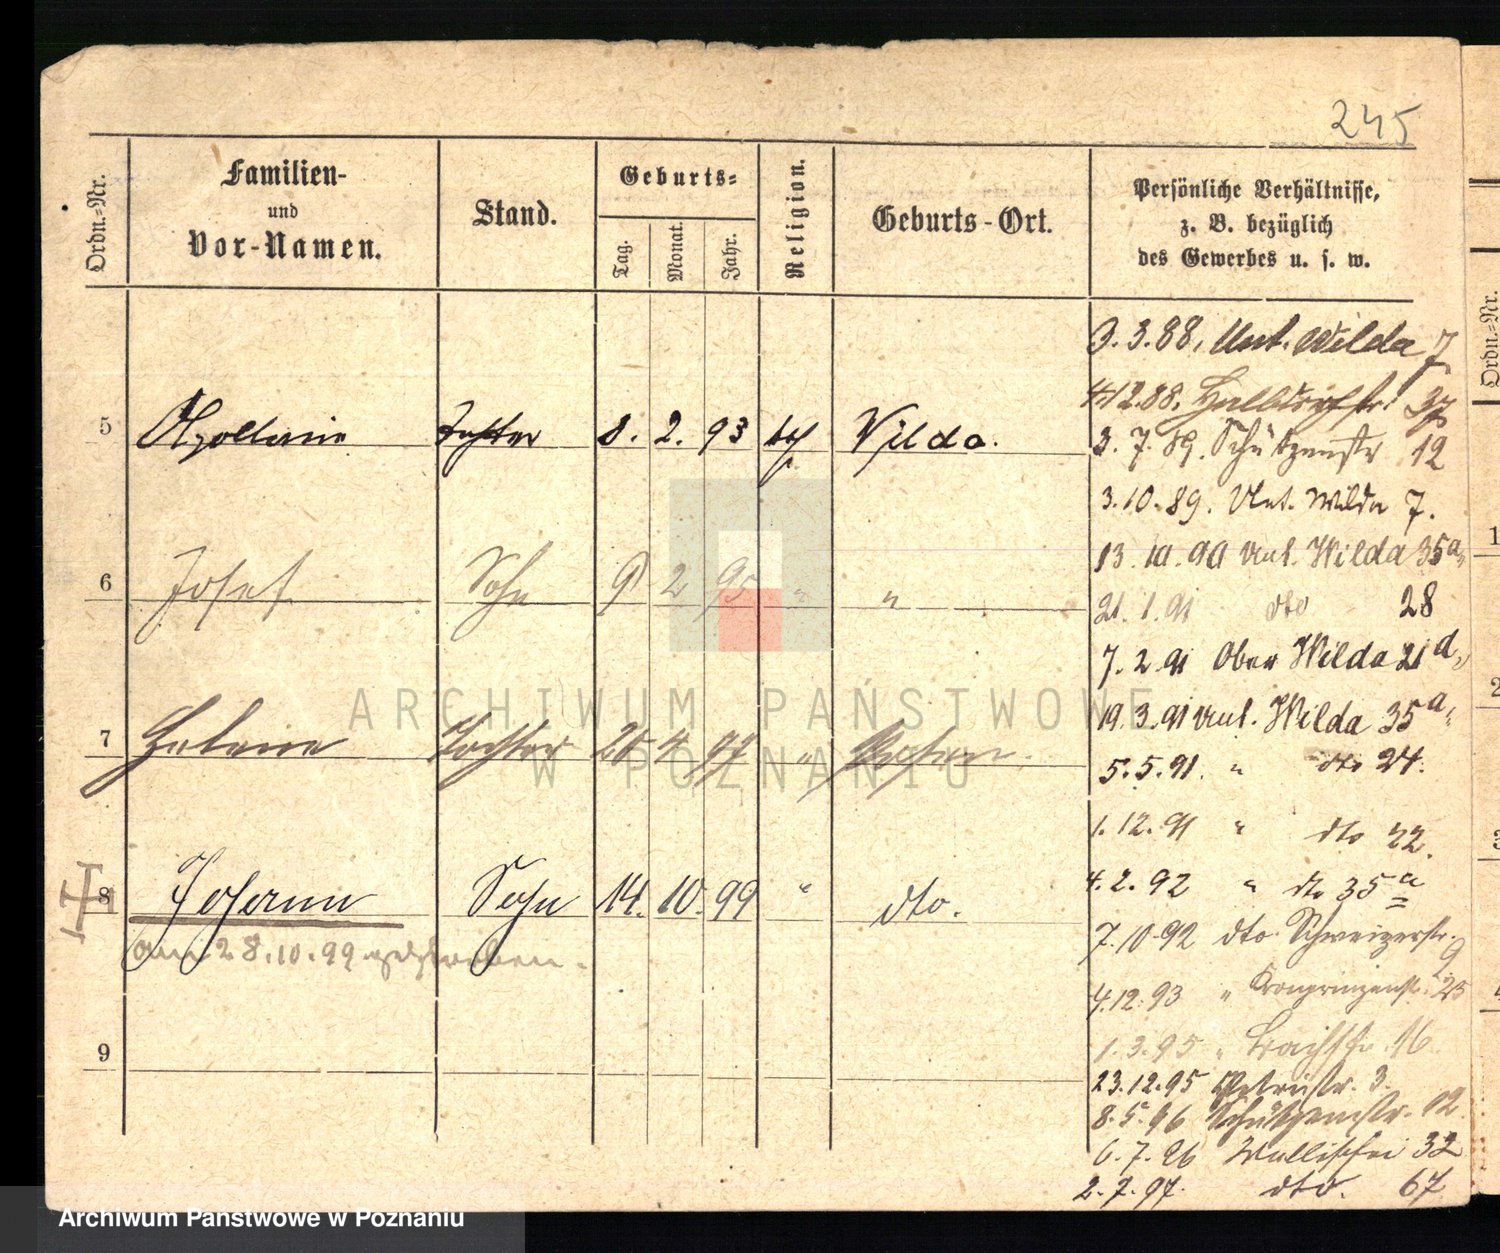 245
Ordn.-Nr.
Familien-
und
Vor-Namen.
Stand.
Geburts-
Tag.
Monat.
Jahr.
Religion.
Geburts-Ort.
Persönliche Verhältnisse,
z. B. bezüglich
des Gewerbes u. s. w.
5 Apollonia Tochter 8. 2. 93 Wilda.
6 Josef Sohn 9 2 95 " "
7 Helene Tochter 25 4 97 " Posen.
8 Johann Sohn 14. 10. 99 " dto.
am 28.10.99 gestorben.
9
3.3.88. Unt. Wilda 7
4.12.88. Halbdorfstr. 37
3.7.89. Schützenstr 12
3.10.89. Unt. Wilda 7.
13.10.90 Unt. Wilda 35a
21.1.91 dto 28
7.2.91 Ober Wilda 21d
19.3.91 Unt. Wilda 35a
5.5.91. " dto 24.
1.12.91 " dto 22.
4.2.92 " dto 35a
7.10.92 dto. Schweizerstr. 9
4.12.93 " Kronprinzenstr. 25
1.3.95 " 16
23.12.95 Petristr. 3.
8.5.96 Schützenstr. 12.
6.7.96 Wallischei 32
2.7.97. dto. 67
Ordn.-Nr.
1
2
3
4
ARCHIWUM PAŃSTWOWE
W POZNANIU
Archiwum Państwowe w Poznaniu